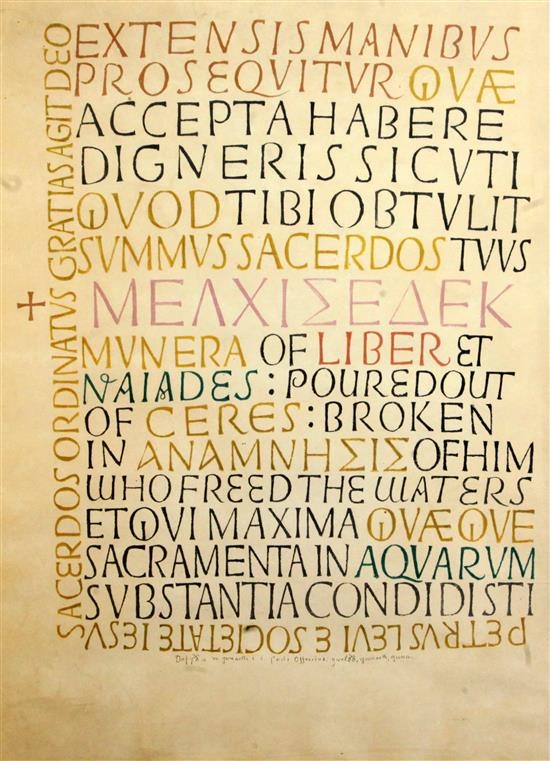 EXTENSIS MANIBVS
PROSEQVITVR QVÆ
ACCEPTA HABERE
DIGNERIS SICVTI
QVOD TIBI OBTVLIT
SVMMVS SACERDOS TVVS
ΜΕΛΧΙΣΕΔΕΚ
MVNERA OF LIBER ET
NAIADES : POURED OUT
OF CERES : BROKEN
IN ΑΝΑΜΝΗΣΙΣ OF HIM
WHO FREED THE WATERS
ET QVI MAXIMA QVÆ QVE
SACRAMENTA IN AQVARVM
SVBSTANTIA CONDIDISTI
PETRVS LEVI E SOCIETATE IESVS
SACERDOS ORDINATVS GRATIAS AGIT DEO